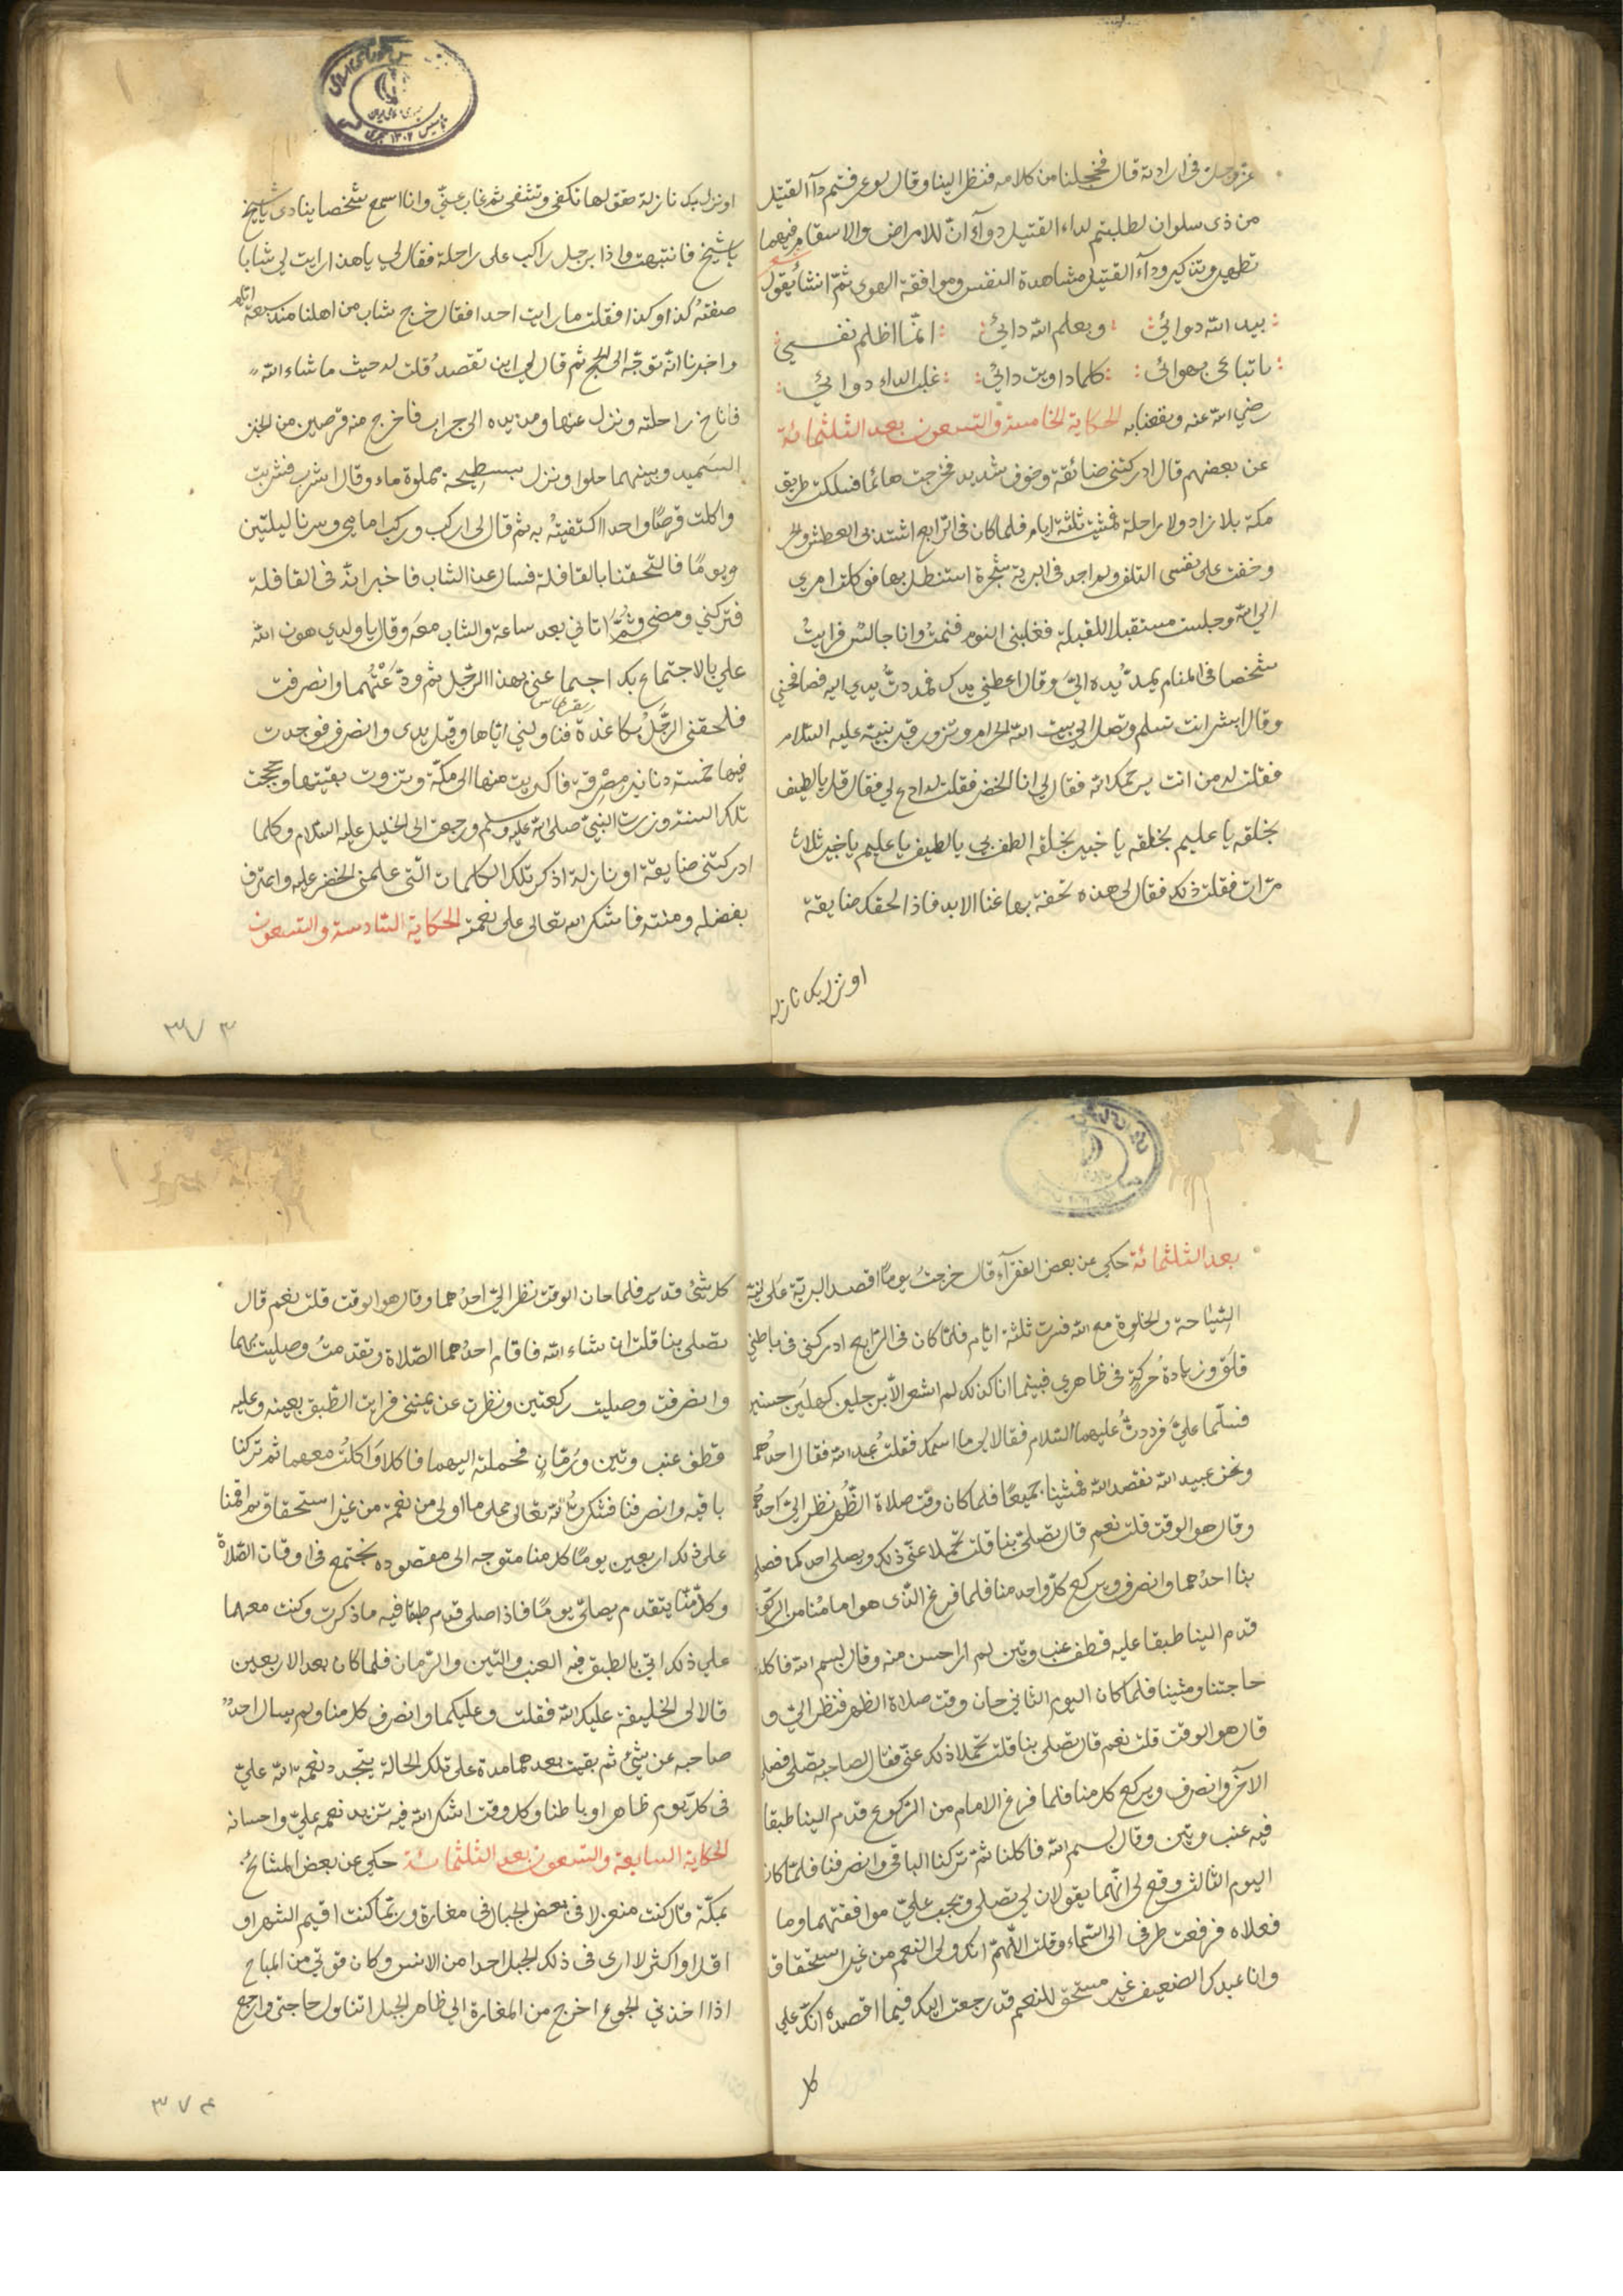 عز وجل في ارادته قال فخجلنا من كلامه فنظر الينا وقال لو عرفتم دآء القتيل
من ذى سلوان لطلبتم لداء القتيل دوآء انّ للامراض والاسقام فيهما
تطهير وتذكير ودآء القتيل مشاهدة النفس وموافقة الهوى ثمّ انشأ يقول
شعر
بيد الله دوائي وبعلم الله دائي انّما اظلم نفسي
باتباعى بهوائى كلما داويت دائي غلب الداء دوائي
رضي الله عنه ونفعنا به الحكاية الخامسة والتسعون بعد الثلثمائة
عن بعضهم قال ادركتنى ضائقة وخوف شديد فخرجت هائما فسلكت طريق
مكة بلا زاد ولا راحلة فمشيت ثلثة ايام فلما كان في الرابع اشتد بى العطش والحر
وخفت على نفسى التلف ولم اجد فى البرية شجرة استظل بها فوكلت امري
الي الله وجلست مستقبل القبلة فغلبنى النوم فنمت وانا جالس فرايت
شخصا فى المنام يمدّ يده اليّ وقال اعطني يدك فمددتُ يدي اليه فصافحني
وقال ابشر انت تسلم وتصل الي بيت الله الحرام وتزور قبر نبيه عليه السلام
فقلت له من انت يرحمك الله فقال لي انا الخضر فقلت له ادع لي فقال قل يا لطيف
بخلقه يا عليم بخلقه يا خبير بخلقه الطف بي يا لطيف يا عليم يا خبير ثلاث
مرات فقلت ذلك فقال لى هذه تحفة بها غنا الابد فاذا لحقك ضايقة
او نزل بك نازلة
او نزل بك نازلة فقلها تكفى وتشفى ثم غاب عنّي وانا اسمع شخصا ينادى يا شيخ
يا شيخ فانتبهت واذا برجل راكب على راحلة فقال لي يا هذا رايت لي شابا
صفته كذا وكذا فقلت ما رايت احدا فقال خرج شاب من اهلنا منذ سبعة ايام
واخبرنا انّه توجّه الى الحج ثم قال لي اين تقصد قلت له حيث ما شاء الله
فاناخ راحلته ونزل عنها ومد يده الى جراب فاخرج منه قرصين من الخبز
السميد وبينهما حلوا ونزل بسطيحة مملوة ماء وقال اشرب فشربت
واكلت قرصًا واحدا اكتفيتُ به ثم قال لى اركب وركب امامي وسرنا ليلتين
ويومًا فالتحقنا بالقافلة فسال عن الشاب فاخبر انّه فى القافلة
فتركني ومضى وثمّ اتاني بعد ساعة والشاب معه وقال يا ولدي هون الله
علي بالاجتماع بك اجتماعنى بهذا الرّجل ثم ودّعتُهما وانصرفت
قرطاس
فلحقنى الرّجل بكاغذة فناولني اياها وقبل يدى وانصرف فوجدت
فيها خمسة دنانير مصرية فاكريت منها الى مكّة وتزوت بقيتها وحججت
تلك السنة وزرت النبيّ صلى الله عليه وسلم ورجعت الى الخليل عليه السلام وكلما
ادركتنى ضايقة او نازلة اذكر تلك الكلمات التّى علمنى الخضر عليه واعترف
بفضله ومنته فاشكر الله تعالى على نعمته الحكاية السادسة والتسعون
٣٧٣
بعد الثلثمائة حكي عن بعض الفقرآء قال خرجتُ يومًا اقصد البريّة على نية
السّياحة والخلوة مع الله فسرت ثلثة ايّام فلمّا كان فى الرّابع ادركنى فى باطني
قلق وزيادة حركةٍ فى ظاهري فبينما انا كذلك لم اشعر الّا برجلين كهلين حسنين
فسلّما عليّ فرددتُ عليهما السلام فقالا لى ما اسمك فقلتُ عبد الله فقال احدُهما
ونحن عبيد الله نقصد الله فمشينا جميعًا فلما كان وقت صلاة الظّهر نظر اليّ احدهما
وقال هو الوقت قلت نعم قال تصلّى بنا قلت تحمّلا عنّى ذلك ويصلى احدكما فصلى
بنا احدُهما وانصرف وركع كلّ واحد منا فلما فرغ الذّى هو امامُنا من الركوع
قدم الينا طبقا عليه قطف عنب وتين لم ار احسن منه وقال بسم الله فاكلنا
حاجتنا ومشينا فلما كان اليوم الثاني حان وقت صلاة الظهر فنظر اليّ و
قال هو الوقت قلت نعم قال تصلى بنا قلت تحمّلا ذلك عنّى فقال لصاحبه تصلى فصلى
الآخر وانصرف وركع كل منا فلما فرغ الامام من الركوع قدم الينا طبقا
فيه عنب وتين وقال بسم الله فاكلنا ثم تركنا الباقى وانصرفنا فلمّا كان
اليوم الثالث وقع لى انّهما يقولان لي تصلى ويجب عليّ موافقتهما وما
فعلاه فرفعت طرفى الى السّماء وقلت اللّهمّ انك ولى النعم من غير استحقاق
وانا عبدك الضعيف غير مستحق للنعم قد رجعت اليك فيما اقصده انّك على
كل
كل شئ قدير فلما حان الوقت نظر اليّ احدُهما وقال هو الوقت قلت نعم قال
تصلى بنا قلت ان شاء الله فاقام احدُهما الصّلاة وتقدمتُ وصليت بهما
وانصرفت وصليت ركعتين ونظرت عن يمينى فرايت الطّبق بعينه وعليه
قطف عنب وتين ورُمّان فحملته اليهما فاكلا واكلتُ معهما ثم تركنا
باقيه وانصرفنا فشكرتُ الله تعالى على ما اولى من نعمه من غير استحقاق ثم اقمنا
على ذلك اربعين يومًا كل منا متوجه الى مقصوده نجتمع فى اوقات الصّلاة
وكل منّا يتقدم يصلّى يومًا فاذا صلى قدم طبقا فيه ما ذكرت وكنت معهما
على ذلك اتى بالطبق فيه العنب والتّين والرّمان فلما كان بعد الاربعين
قالا لى الخليفة عليك الله فقلت وعليكما وانصرف كل منا ولم يسال احدٌ
صاحبه عن شئ ثم بقيت بعدهما مدة على تلك الحالة يتجدد نعمة الله عليّ
فى كلّ يوم ظاهرا وباطنا وكل وقت اشكر الله فيه تزيد نعمه عليّ واحسانه
الحكاية السابعة والتسعون بعد الثلثمائة حكي عن بعض المشائخ
بمكّة قال كنت منعزلا فى بعض الجبال فى مغارة وربّما كنت اقيم الشهر او
اقل او اكثر لا ارى فى ذلك الجبل احدا من الانس وكان قوتي من المباح
اذا اخذني الجوع اخرج من المغارة الي ظاهر الجبل اتناول حاجتى وارجع
٣٧٤